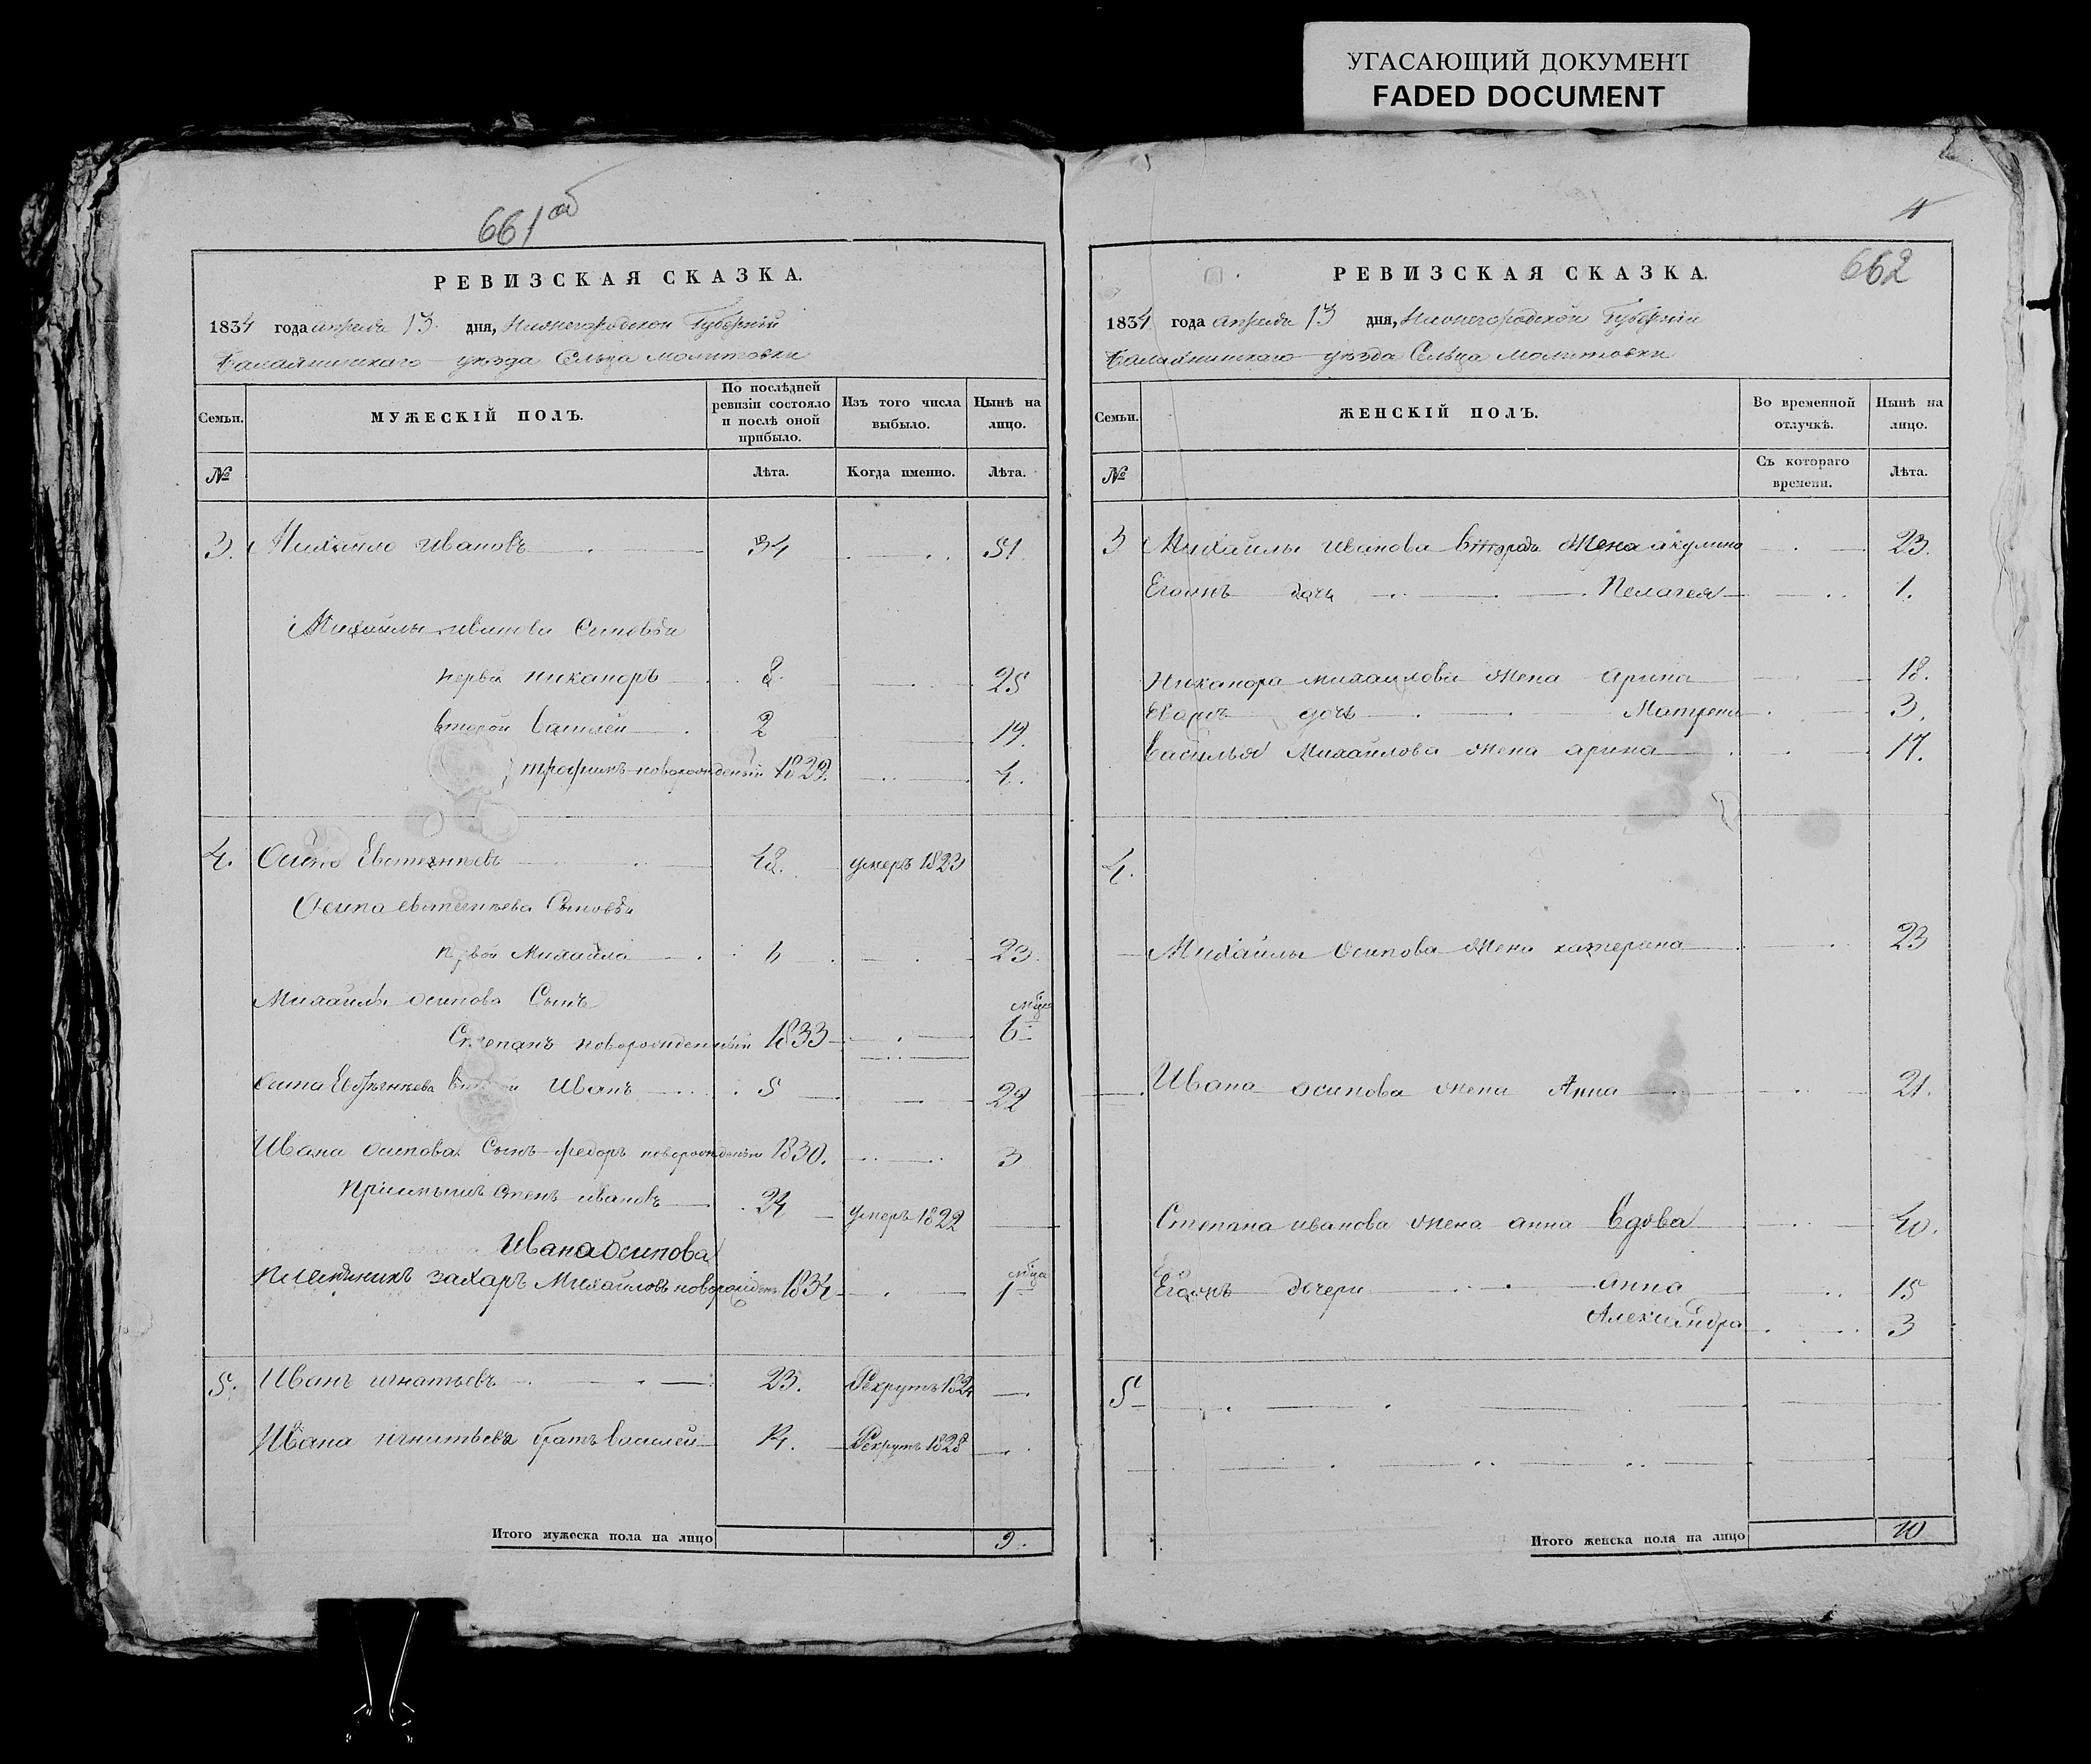 УГАСАЮЩИЙ ДОКУМЕНТ
FADED DOCUMENT
661 об
РЕВИЗСКАЯ СКАЗКА.
1834 года апреля 13 дня, Нижегородской Губерніи
Балахнинскаго уезда Сельца Молитовки
Семьи. МУЖЕСКІЙ ПОЛЪ. По послѣдней ревизіи состояло и послѣ оной прибыло. Изъ того числа выбыло. Нынѣ на лицо.
№ Лѣта. Когда именно. Лѣта.
3. Михайло Ивановъ 34 51
Михайлы иванова Сыновья
первой никаноръ 8. 25
второй василей 2 19.
трофимъ новорожденный 1829. 4.
4. Осипъ 48. умеръ 1823
Осипа Сыновья
первой Михайла 6 23.
Михайлы осипова Сынъ мѣца
Степанъ новорожденный 1833 6
Осипа Иванъ 5 22
Ивана осипова Сынъ федоръ новорожденный 1830. 3
ивановъ 24 умеръ 1822
Ивана осипова
племянникъ захаръ Михайловъ новорожден 1834 мѣца 1
5. Иванъ игнатьевъ 23. Рекрутъ 1824
Ивана игнатьева братъ василей Рекрутъ 1828
Итого мужеска пола на лицо 9.
662
РЕВИЗСКАЯ СКАЗКА.
1834 года апреля 13 дня, Нижегородской Губерніи
Балахнинскаго уезда Сельца Молитовки
Семьи. ЖЕНСКІЙ ПОЛЪ. Во временной отлучкѣ. Нынѣ на лицо.
№ Съ котораго времени. Лѣта.
3 Михайлы иванова жена акулина 23.
Егожъ дочь Пелагея 1.
Никанора михаилова жена Арина 18.
Евожъ дочь Матрена 3.
Василья Михаилова жена арина 17.
4.
Михайлы осипова жена катерина 23
Ивана осипова жена Анна 21.
Степана иванова жена анна вдова 40.
Егожъ дочери анна 15
Александра 3
5
Итого женска пола на лицо 10